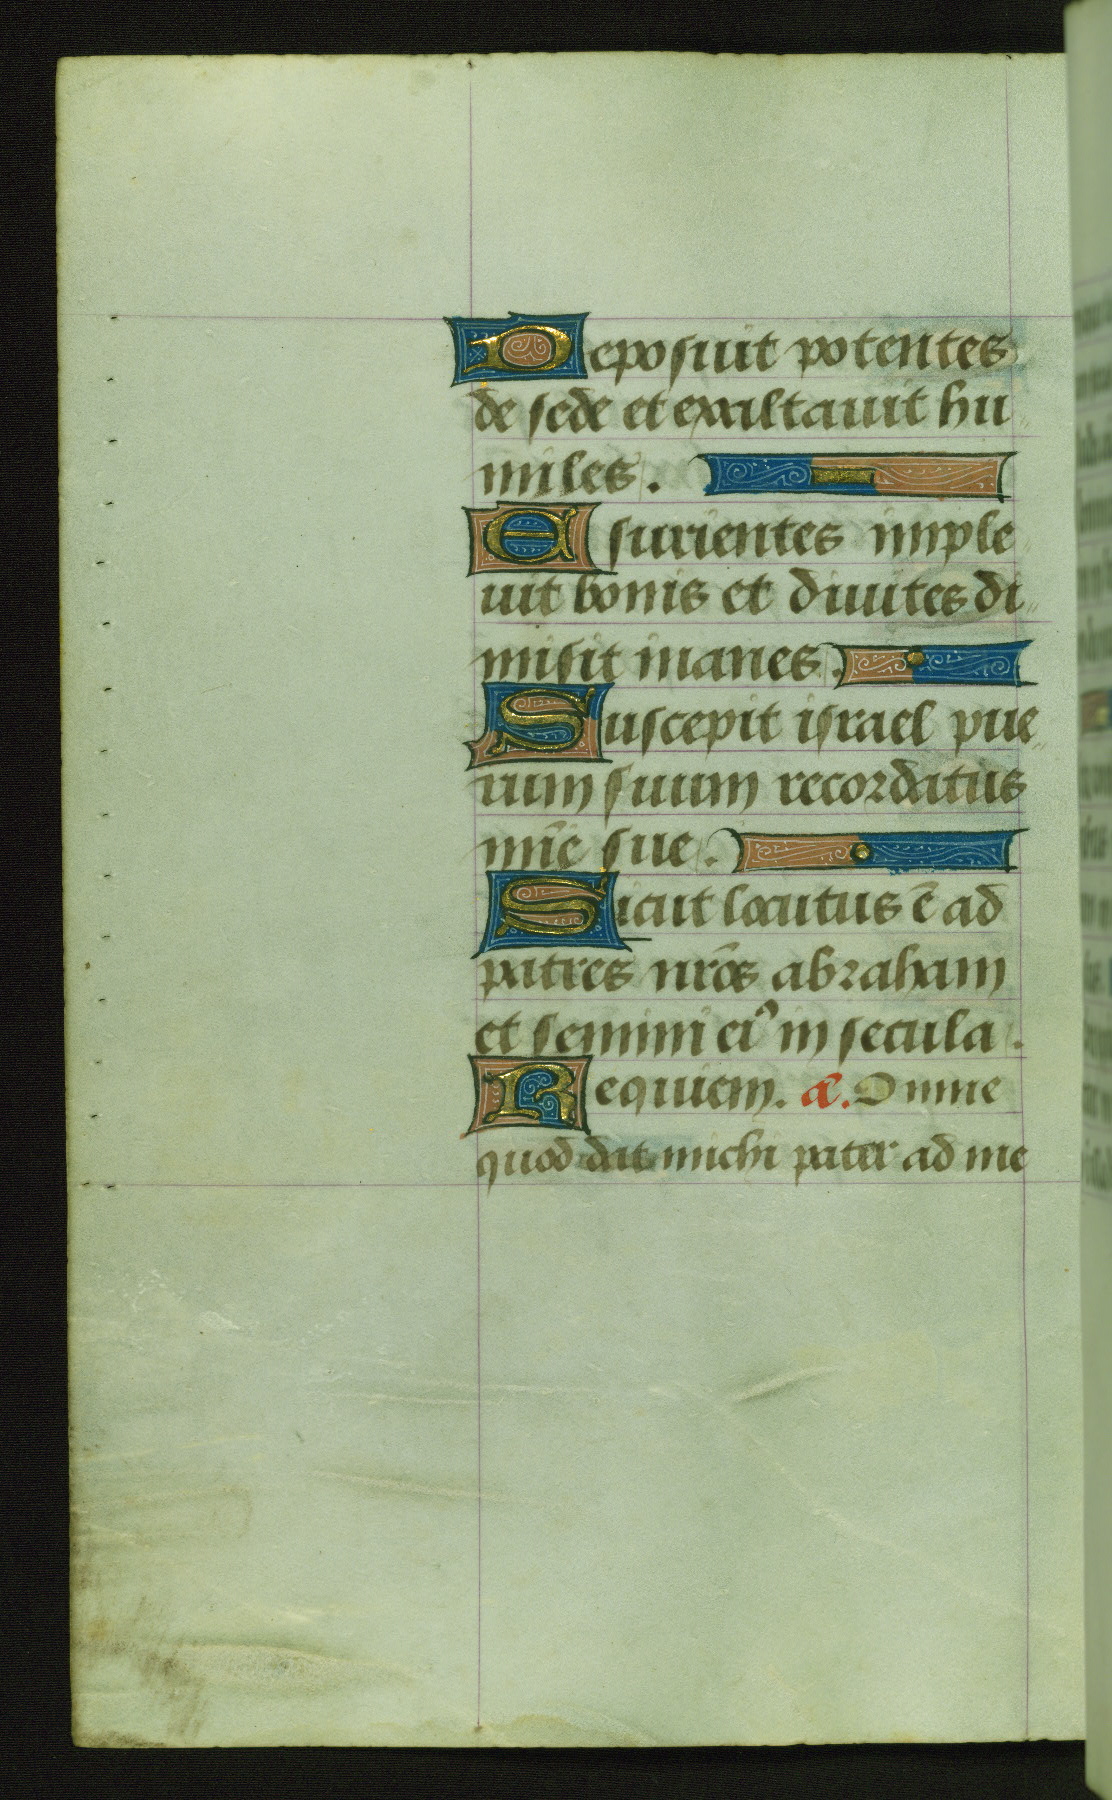 Deposuit potentes
de sede et exaltauit hu
miles.
Esurientes imple
uit bonis et diuites di
misit inanes.
Suscepit israel pue
rum suum recordatus
mīe sue.
Sicut locutus ē ad
patres nr̄os abraham
et semini eiꝰ in secula.
Requiem. a. Omne
quod dat michi pater ad me